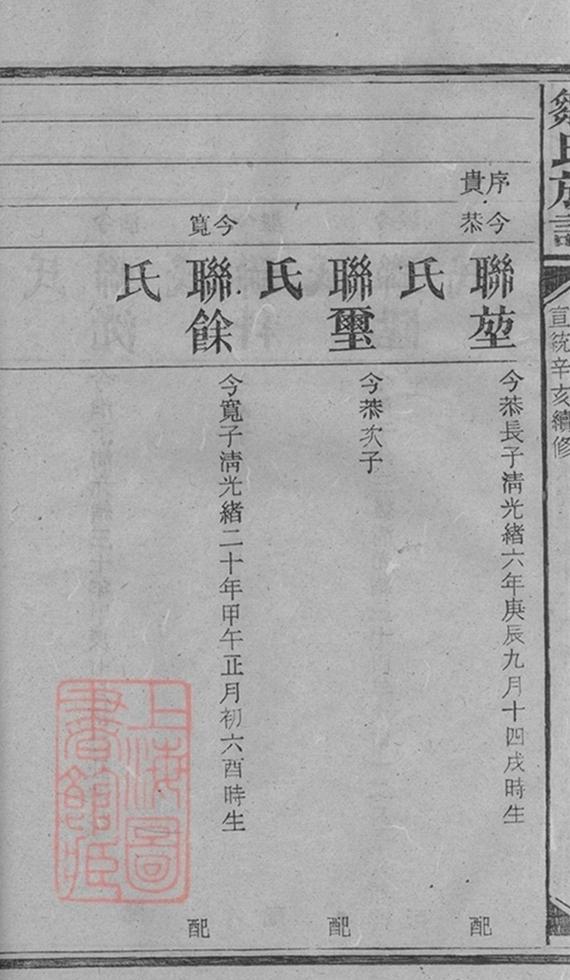 鄒氏族譜
宣統辛亥續修
序貴
今恭
聯堃
今恭長子清光緒六年庚辰九月十四戌時生
配
氏
聯璽
今恭次子
配
氏
今寬
聯餘
今寬子清光緒二十年甲午正月初六酉時生
配
氏
上海圖
書館藏